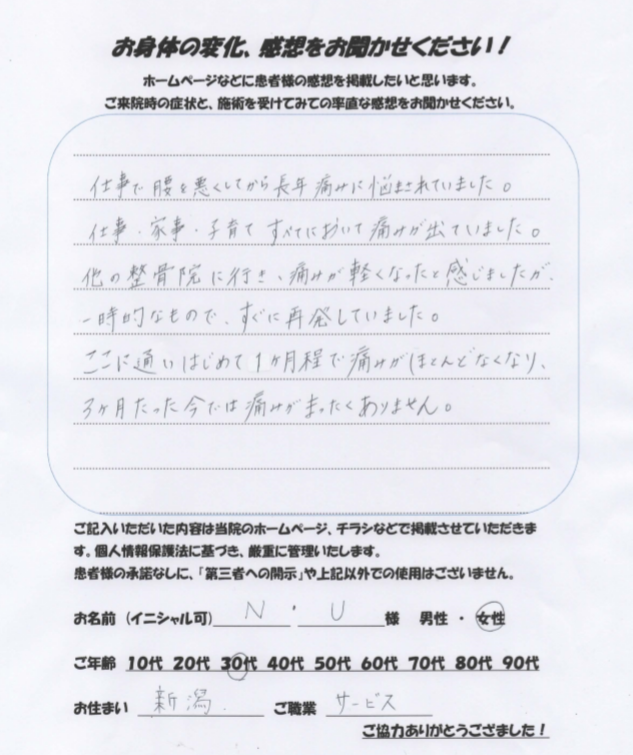 お身体の変化、感想をお聞かせください！
ホームページなどに患者様の感想を掲載したいと思います。
ご来院時の症状と、施術を受けてみての率直な感想をお聞かせください。
仕事で腰を悪くしてから長年痛みに悩まされていました。
仕事・家事・子育てすべてにおいて痛みが出ていました。
他の整骨院に行き、痛みが軽くなったと感じましたが、
一時的なもので、すぐに再発していました。
ここに通いはじめて1ヶ月程で痛みがほとんどなくなり、
3ヶ月たった今では痛みがまったくありません。
ご記入いただいた内容は当院のホームページ、チラシなどで掲載させていただきま
す。個人情報保護法に基づき、厳重に管理いたします。
患者様の承諾なしに、「第三者への開示」や上記以外での使用はございません。
お名前（イニシャル可） N ・ U 様 男性 ・ 女性
ご年齢 10代 20代 30代 40代 50代 60代 70代 80代 90代
お住まい 新潟 ご職業 サービス
ご協力ありがとうござました！